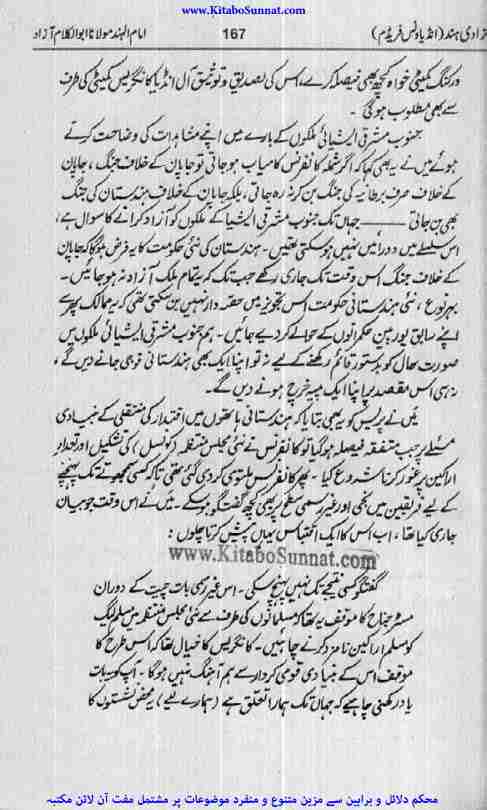 www.KitaboSunnat.com
زادی ہند (انڈیا ونس فریڈم) 167 امام الہند مولانا ابوالکلام آزاد
ورکنگ کمیٹی خواہ کچھ بھی فیصلہ کرے، اس کی تصدیق و توثیق آل انڈیا کانگریس کمیٹی کی طرف
سے بھی مطلوب ہوگی۔
جنوب مشرقی ایشیائی ملکوں کے بارے میں اپنے مشاہدات کی وضاحت کرتے
ہوئے میں نے یہ بھی کہا کہ اگر شملہ کانفرنس کامیاب ہو جاتی تو جاپان کے خلاف جنگ، جاپان
کے خلاف صرف برطانیہ کی جنگ بن کر نہ رہ جاتی، بلکہ جاپان کے خلاف ہندستان کی جنگ
بھی بن جاتی ——— جہاں تک جنوب مشرقی ایشیا کے ملکوں کو آزاد کرانے کا سوال ہے،
اس سلسلے میں دو رائیں نہیں ہو سکتی تھیں۔ ہندستان کی نئی حکومت کا یہ فرض ہوگا کہ جاپان
کے خلاف جنگ اس وقت تک جاری رکھے جب تک کہ یہ تمام ملک آزاد نہ ہو جائیں۔
بہر نوع، نئی ہندستانی حکومت اس تجویز میں حصہ دار نہیں بن سکتی تھی کہ یہ ممالک پھر سے
اپنے سابق یورپین حکمرانوں کے حوالے کر دیے جائیں۔ ہم جنوب مشرقی ایشیائی ملکوں میں
صورت حال کو بدستور قائم رکھنے کے لیے نہ تو اپنا ایک بھی ہندستانی فوجی جانے دیں گے،
نہ ہی اس مقصد پر اپنا ایک پیسہ خرچ ہونے دیں گے۔
میں نے پریس کو یہ بھی بتایا کہ ہندستانی ہاتھوں میں اقتدار کی منتقلی کے بنیادی
مسئلے پر جب متفقہ فیصلہ ہو گیا تو کانفرنس نے نئی مجلس منتظمہ (کونسل) کی تشکیل اور تعداد
اراکین پر غور کرنا شروع کیا۔ پھر کانفرنس ملتوی کر دی گئی تھی تاکہ کسی سمجھوتے تک پہنچنے
کے لیے فریقین میں نجی اور غیر رسمی سطح پر بھی کچھ گفتگو ہو سکے۔ میں نے اس وقت جو بیان
جاری کیا تھا، اب اس کا ایک اقتباس یہاں پیش کرتا چلوں:
www.KitaboSunnat.com
گفتگو کسی نتیجے تک نہیں پہنچ سکی۔ اس غیر رسمی بات چیت کے دوران
مسٹر جناح کا موقف یہ تھا کہ مسلمانوں کی طرف سے نئی مجلس منتظمہ میں مسلم لیگ
کو مسلم اراکین نامزد کرنے چاہئیں۔ کانگریس کا خیال تھا کہ اس طرح کا
موقف اس کے بنیادی قومی کردار سے ہم آہنگ نہیں ہوگا۔ آپ کو یہ بات
یاد رکھنی چاہیے کہ جہاں تک ہمارا تعلق ہے (ہمارے لیے) یہ محض نشستوں کا
محکم دلائل و براہین سے مزین متنوع و منفرد موضوعات پر مشتمل مفت آن لائن مکتبہ